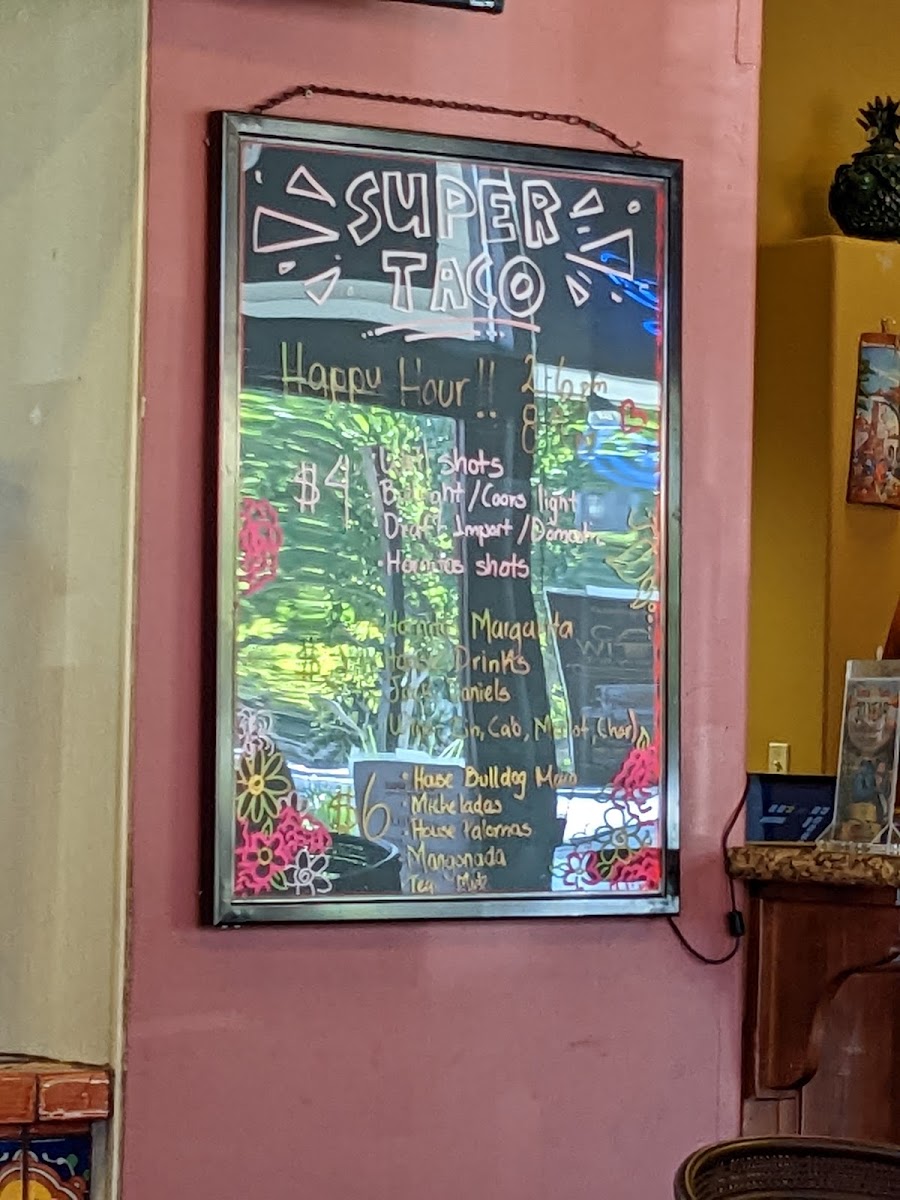 SUPER
TACO
Happy Hour!! 2-6 pm
$4 shots
Bud light / Coors light
Draft Import / Domestic
Hornitos shots
Hornitos Margarita
House Drinks
Jack Daniels
Cab, Merlot, Char)
$6 House Bulldog
Micheladas
House Palomas
Mangonada